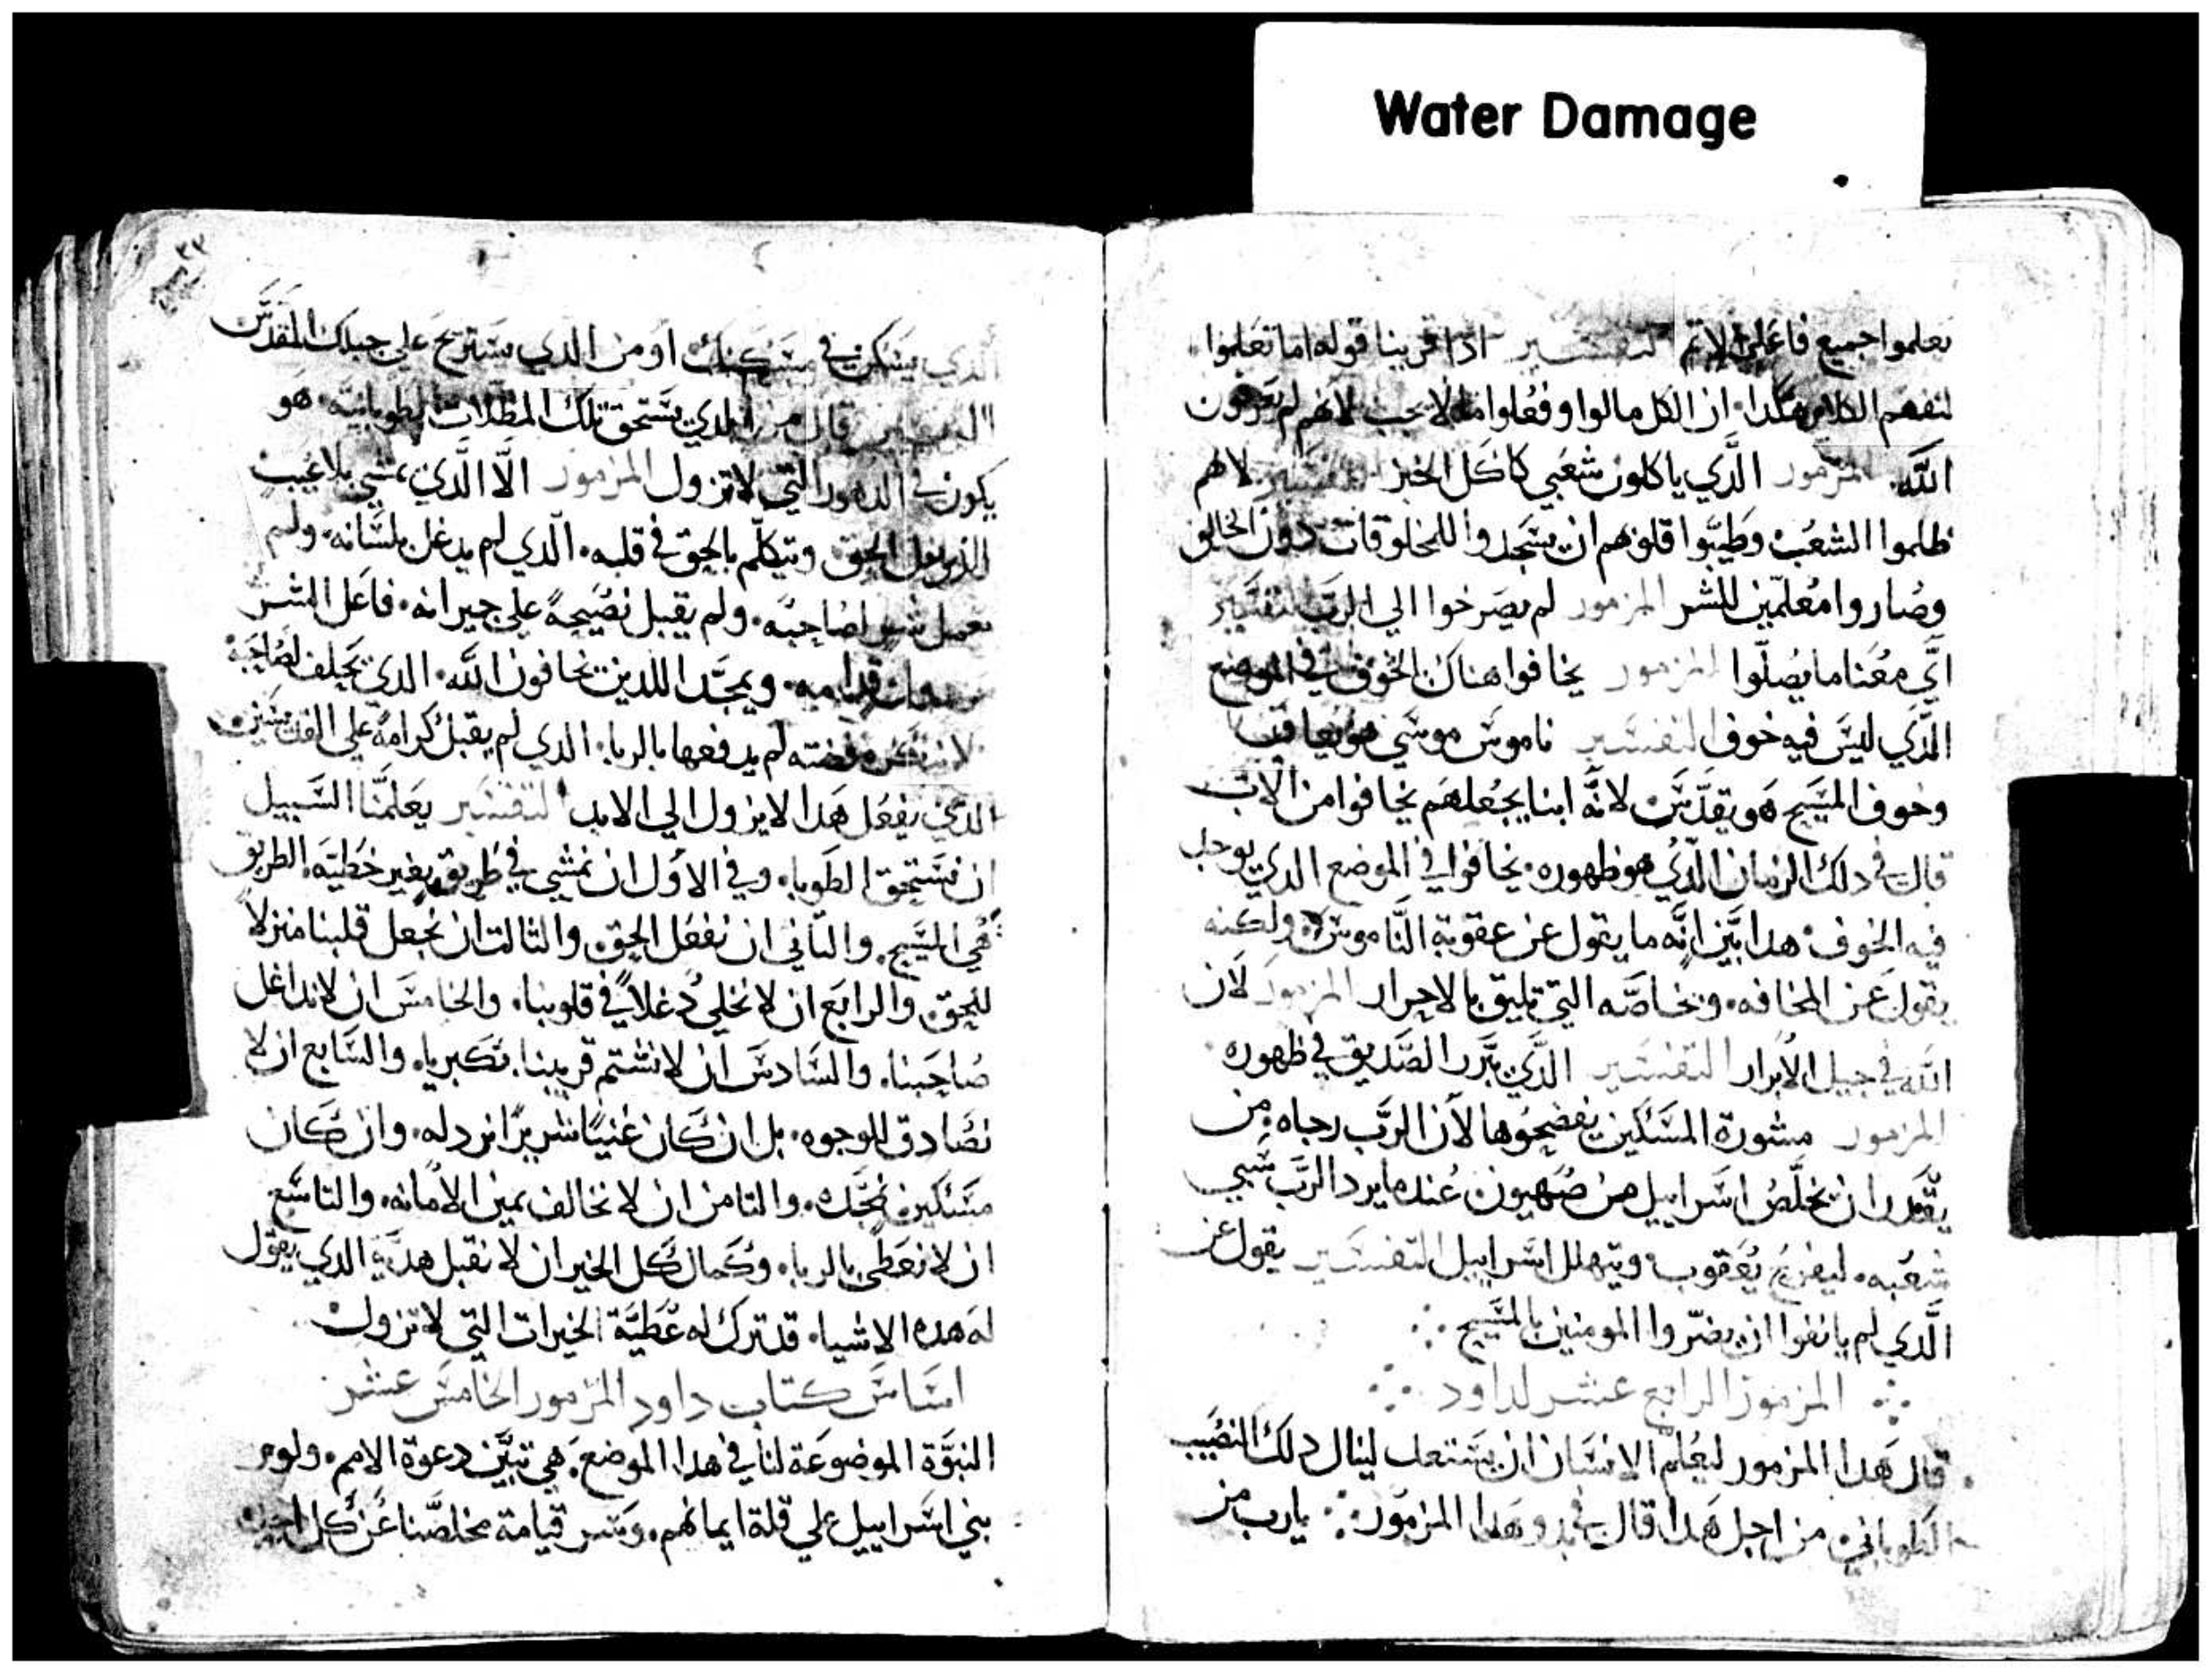 Water Damage
يعلموا جميع فاعلي الاتم التفسير اذا قرينا قوله اما تعلموا
لنفهم الكلام هكدا. ان الكل مالوا وفعلوا ما لا يجب لانهم لم يعرفون
الله. المزمور الَّدي ياكلون شعبي كاكل الخبز التفسير لانهم
ظلموا الشعب وطيبّوا قلوبهم ان يسَجدوا للمخلوقات دون الخالق
وصاروا مُعلّمين للشر المزمور لم يصَرخوا الي الرَبّ التفسَير
ايّ مُعَنا ما يصُلّوا المزمور يخافوا هناك الخوف في الموضع
الَّدي ليسَ فيه خوف التفسَير ناموسَ موسَي هو يعاقب
وخوف المسَيح هَو يقدّسَ لانَّه ابنا يجُعلهَم يخافوا من الاب
قال في دلك الزمان الَّدي هو ظهوره. يخافوا في الموضع الدي يوجب
فيه الخوف. هدا بيَّن انَّه ما يقول عن عقوبة النَّاموسَ. ولكنه
يقول عَن المخافه. وبخاصَّه التي تليق بالاحرار المزمور لان
الله في جيل الابرار التفسَير الَّدي تبَّرر الصَّديق في ظهوره
المزمور مشورة المسَكين يفضحَوها لاَن الرَّب رجاه. من
يُقدر ان يخلَّصُ اسَراييل من صَهيون. عُندما يرد الرَّب سَبي
شعُبه. ليفرح يُعَقوب. ويتهلل اسَراييل التفسَير يقول عن
الَّدي لم يانفوا ان يضرّوا المومنين بالمسَيح
المزمور الرابع عشر لداود
قال هَدا المزمور ليُعلم الانسَان ان يسَتعد لينال دلك النصَيب
الطوباني. من اجل هَدا قال في بدو هَدا المزموَر. يارب من
٣٢
الَّدي يسَكن في مسَكنك. او من الدي يسَتريح علي جبلك المقدَّسَ
التفسير قال من الدي يسَتحق تلك المظلات الطوبانيّة. هَو
يكون في الدهور التي لا تزول المزمور الَّا الَّدي يمشي بلا عيب
الدي يفعل الحق. ويتكلّم بالحق في قلبه. الَّدي لم يدغل بلسَانه. ولم
يعمل شر لصَاحبُه. ولم يقبل نصُيحةً علي جيرانه. فاعَل الشر
قدامه. ويمجَّد اللدين يخافون الله. الدي يَحلف لصُاحَبهْ
لا ينكر. وفضته لم يدفعها بالربا. الدي لم يقبل كرامةً علي
الدَّي يفعُل هَدا لا يزول الي الابد التفسَير يعَلمَّنا السَّبيل
ان نسَتحق الطَوبا. وفي الاوَل ان نمشي في طَريق بغير خَطيّه. الطريق
هُي المسَيح. والتاني ان نفعَل الحق. والتالت ان نجُعل قلبنا منزلاً
للحق. والرابَع ان لا نخلي دُغلاً في قلوبنا. والخامسَ ان لا نداغل
صُاحَبنا. والسَّادسَ ان لا نشتم قريبنا بتَكبريا. والسَّابع ان لا
نصَادق الوجوه. بل ان كَان غنيًا شريرًا نردله. وان كان
مسَكين نمجّده. والتامن ان لا نخالف يمين الاُمانه. والتاسَع
ان لا نعَطي بالربا. وكُمال كل الخير ان لا نقبل هدَّية الدي يفعل
لهَ هده الاشيا. قد ترك له عَطيَّة الخيرات التي لا تزول
اسَاسَ كتاب داود المزمور الخامسَ عشر
النبَوّة الموضوعَة لنا في هدا الموضع. هَي تبيَّن دعوة الامم. ولوم
بني اسَراييل علي قلة ايمانهم. وسَر قيامة مخلصَّنا عَن كُل